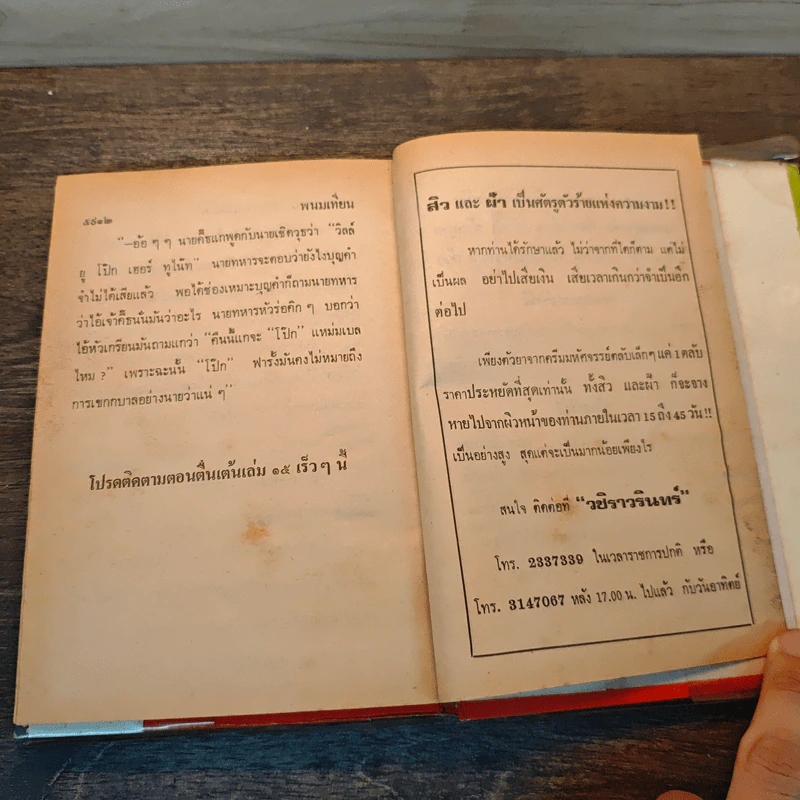 พนมเทียน
๕๘๑๒
"—อ้อ ๆ ๆ นายคี๊ธแกพูดกับนายเชิดวุธว่า "วิลล์
ยู โป๊ก เฮอร์ ทูไน๊ท" นายทหารจะตอบว่ายังไงบุญคำ
จำไม่ได้เสียแล้ว พอได้ช่องเหมาะบุญคำก็ถามนายทหาร
ว่าไอ้เจ้าคี๊ธนั่นมันว่าอะไร นายทหารหัวร่อคิก ๆ บอกว่า
ไอ้หัวเกรียนมันถามแกว่า "คืนนี้แกจะ "โป๊ก" แหม่มเบล
ไหม ?" เพราะฉะนั้น "โป๊ก" ฟารั่งมันคงไม่หมายถึง
การเขกกบาลอย่างนายว่าแน่ ๆ"
โปรดติดตามตอนตื่นเต้นเล่ม ๑๕ เร็ว ๆ นี้
สิว และ ฝ้า เป็นศัตรูตัวร้ายแห่งความงาม!!
หากท่านได้รักษาแล้ว ไม่ว่าจากที่ใดก็ตาม แต่ไม่
เป็นผล อย่าไปเสียเงิน เสียเวลาเกินกว่าจำเป็นอีก
ต่อไป
เพียงด้วยาจากครีมมหัศจรรย์ตลับเล็กๆ แค่ 1 ตลับ
ราคาประหยัดที่สุดเท่านั้น ทั้งสิว และฝ้า ก็จะจาง
หายไปจากผิวหน้าของท่านภายในเวลา 15 ถึง 45 วัน!!
เป็นอย่างสูง สุดแต่จะเป็นมากน้อยเพียงไร
สนใจ ติดต่อที่ "วชิราวรินทร์"
โทร. 2337339 ในเวลาราชการปกติ หรือ
โทร. 3147067 หลัง 17.00 น. ไปแล้ว กับวันอาทิตย์